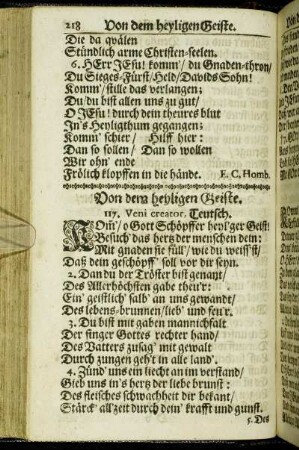 218 Von dem heyligen Geiste.
Die da qvälen
Stündlich arme Christen-seelen.
6. HErr JEsu! komm'/ du Gnaden-thron/
Du Sieges-Fürst/Held/Davids Sohn!
Komm'/stille das verlangen;
Du/du bist allen uns zu gut/
O JEsu! durch dein theures blut
In's Heyligthum gegangen;
Komm' schier/ Hilff hier:
Dan so sollen/ Dan so wollen
Wir ohn' ende
Frölich klopffen in die hände. E. C. Homb.
Von dem heyligen Geiste.
117. Veni creator. Teutsch.
KOm'/ o Gott Schöpffer heyl'ger Geist!
Besuch' das hertz der menschen dein:
Mit gnaden sie füll/ wie du weiss'st/
Daß dein geschöpff' soll vor dir seyn.
2. Dan du der Tröster bist genant/
Des Allerhöchsten gabe theu'r:
Ein' geistlich' salb' an uns gewandt/
Des lebens-brunnen/lieb' und feu'r.
3. Du bist mit gaben mannichfalt
Der finger Gottes rechter hand/
Des Vatters zusag' mit gewalt
Durch zungen geh't in alle land'.
4. Zünd' uns ein liecht an im verstand/
Gieb uns in's hertz der liebe brunst:
Des fleisches schwachheit dir bekant/
Stärck' all'zeit durch dein' krafft und gunst.
5. Des